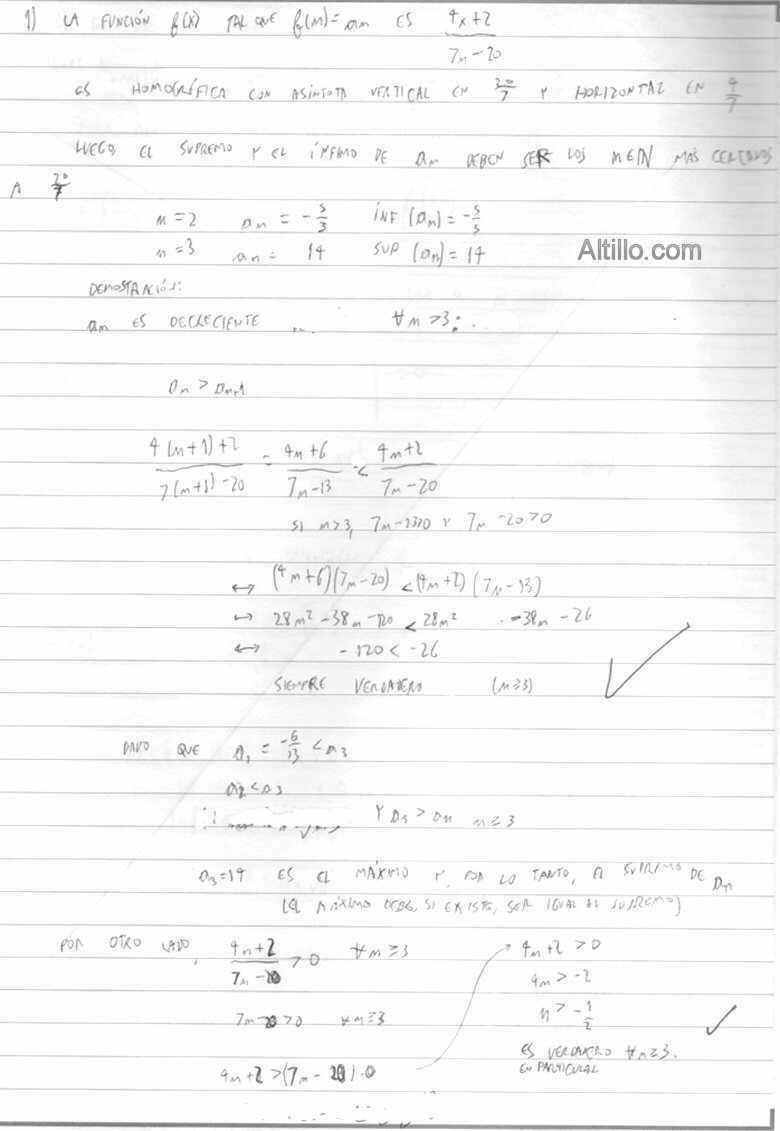 1) LA FUNCIÓN f(x) TAL QUE f(n)= an ES (4x+2)/(7n-20)
ES HOMOGRÁFICA CON ASÍNTOTA VERTICAL EN 20/7 Y HORIZONTAL EN 4/7
LUEGO, EL SUPREMO Y EL ÍNFIMO DE an DEBEN SER LOS n∈ℕ MÁS CERCANOS
A 20/7
n=2 an = -5/3 INF (an) = -5/3
n=3 an = 14 SUP (an) = 14
Altillo.com
DEMOSTRACIÓN:
an ES DECRECIENTE ... ∀n≥3:
an > an+1
(4(n+1)+2)/(7(n+1)-20) = (4n+6)/(7n-13) < (4n+2)/(7n-20)
SI n≥3, 7n-13>0 Y 7n-20>0
↔ (4n+6)(7n-20) < (4n+2)(7n-13)
↔ 28n² -38n -120 < 28n² -38n -26
↔ -120 < -26
SIEMPRE VERDADERO (n≥3)
DADO QUE a1 = -6/13 < a3
a2 < a3
Y a3 > an n≥3
a3=14 ES EL MÁXIMO Y, POR LO TANTO, EL SUPREMO DE an
(EL MÁXIMO DEBE, SI EXISTE, SER IGUAL AL SUPREMO)
POR OTRO LADO, (4n+2)/(7n-20) > 0 ∀n≥3
7n-20>0 ∀n≥3
4n+2 > (7n-20).0
4n+2 > 0
4n > -2
n > -1/2
ES VERDADERO ∀n≥3.
EN PARTICULAR